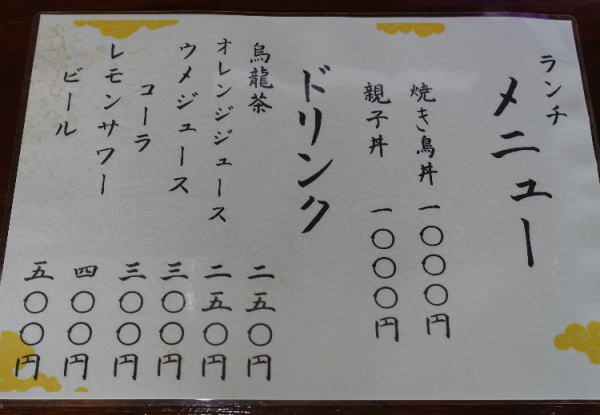 ランチ
メニュー
焼き鳥丼 一〇〇〇円
親子丼 一〇〇〇円
ドリンク
烏龍茶 二五〇円
オレンジジュース 二五〇円
ウメジュース 三〇〇円
コーラ 三〇〇円
レモンサワー 四〇〇円
ビール 五〇〇円